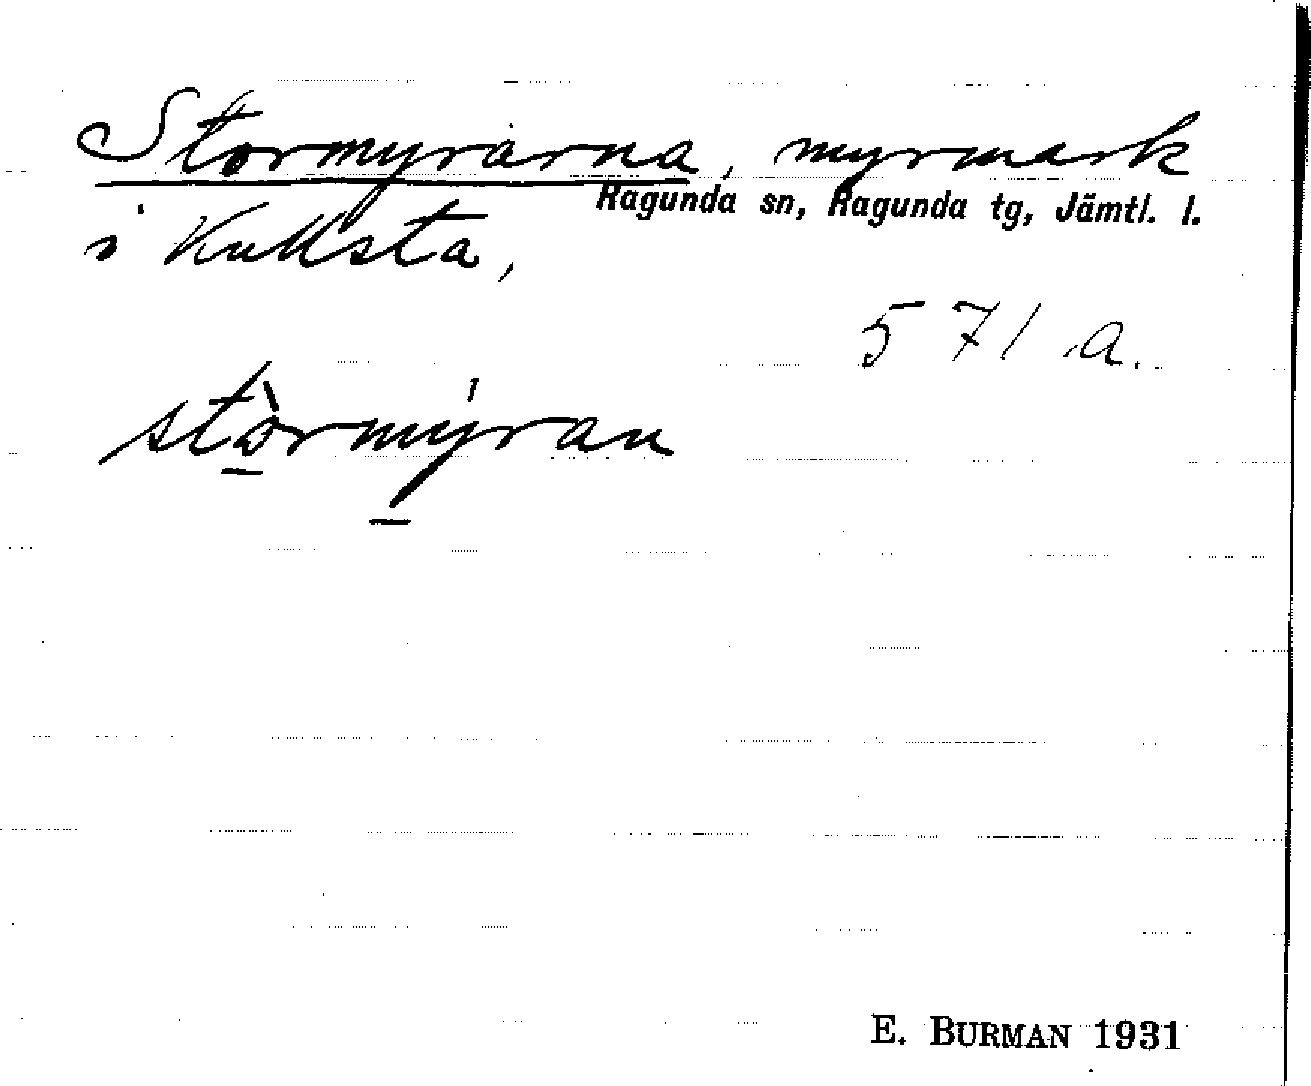 Stormyrarna, myrmark
Ragunda sn, Ragunda tg, Jämtl. l.
i Kullsta,
571 a.
stòrmýran
E. BURMAN 1931